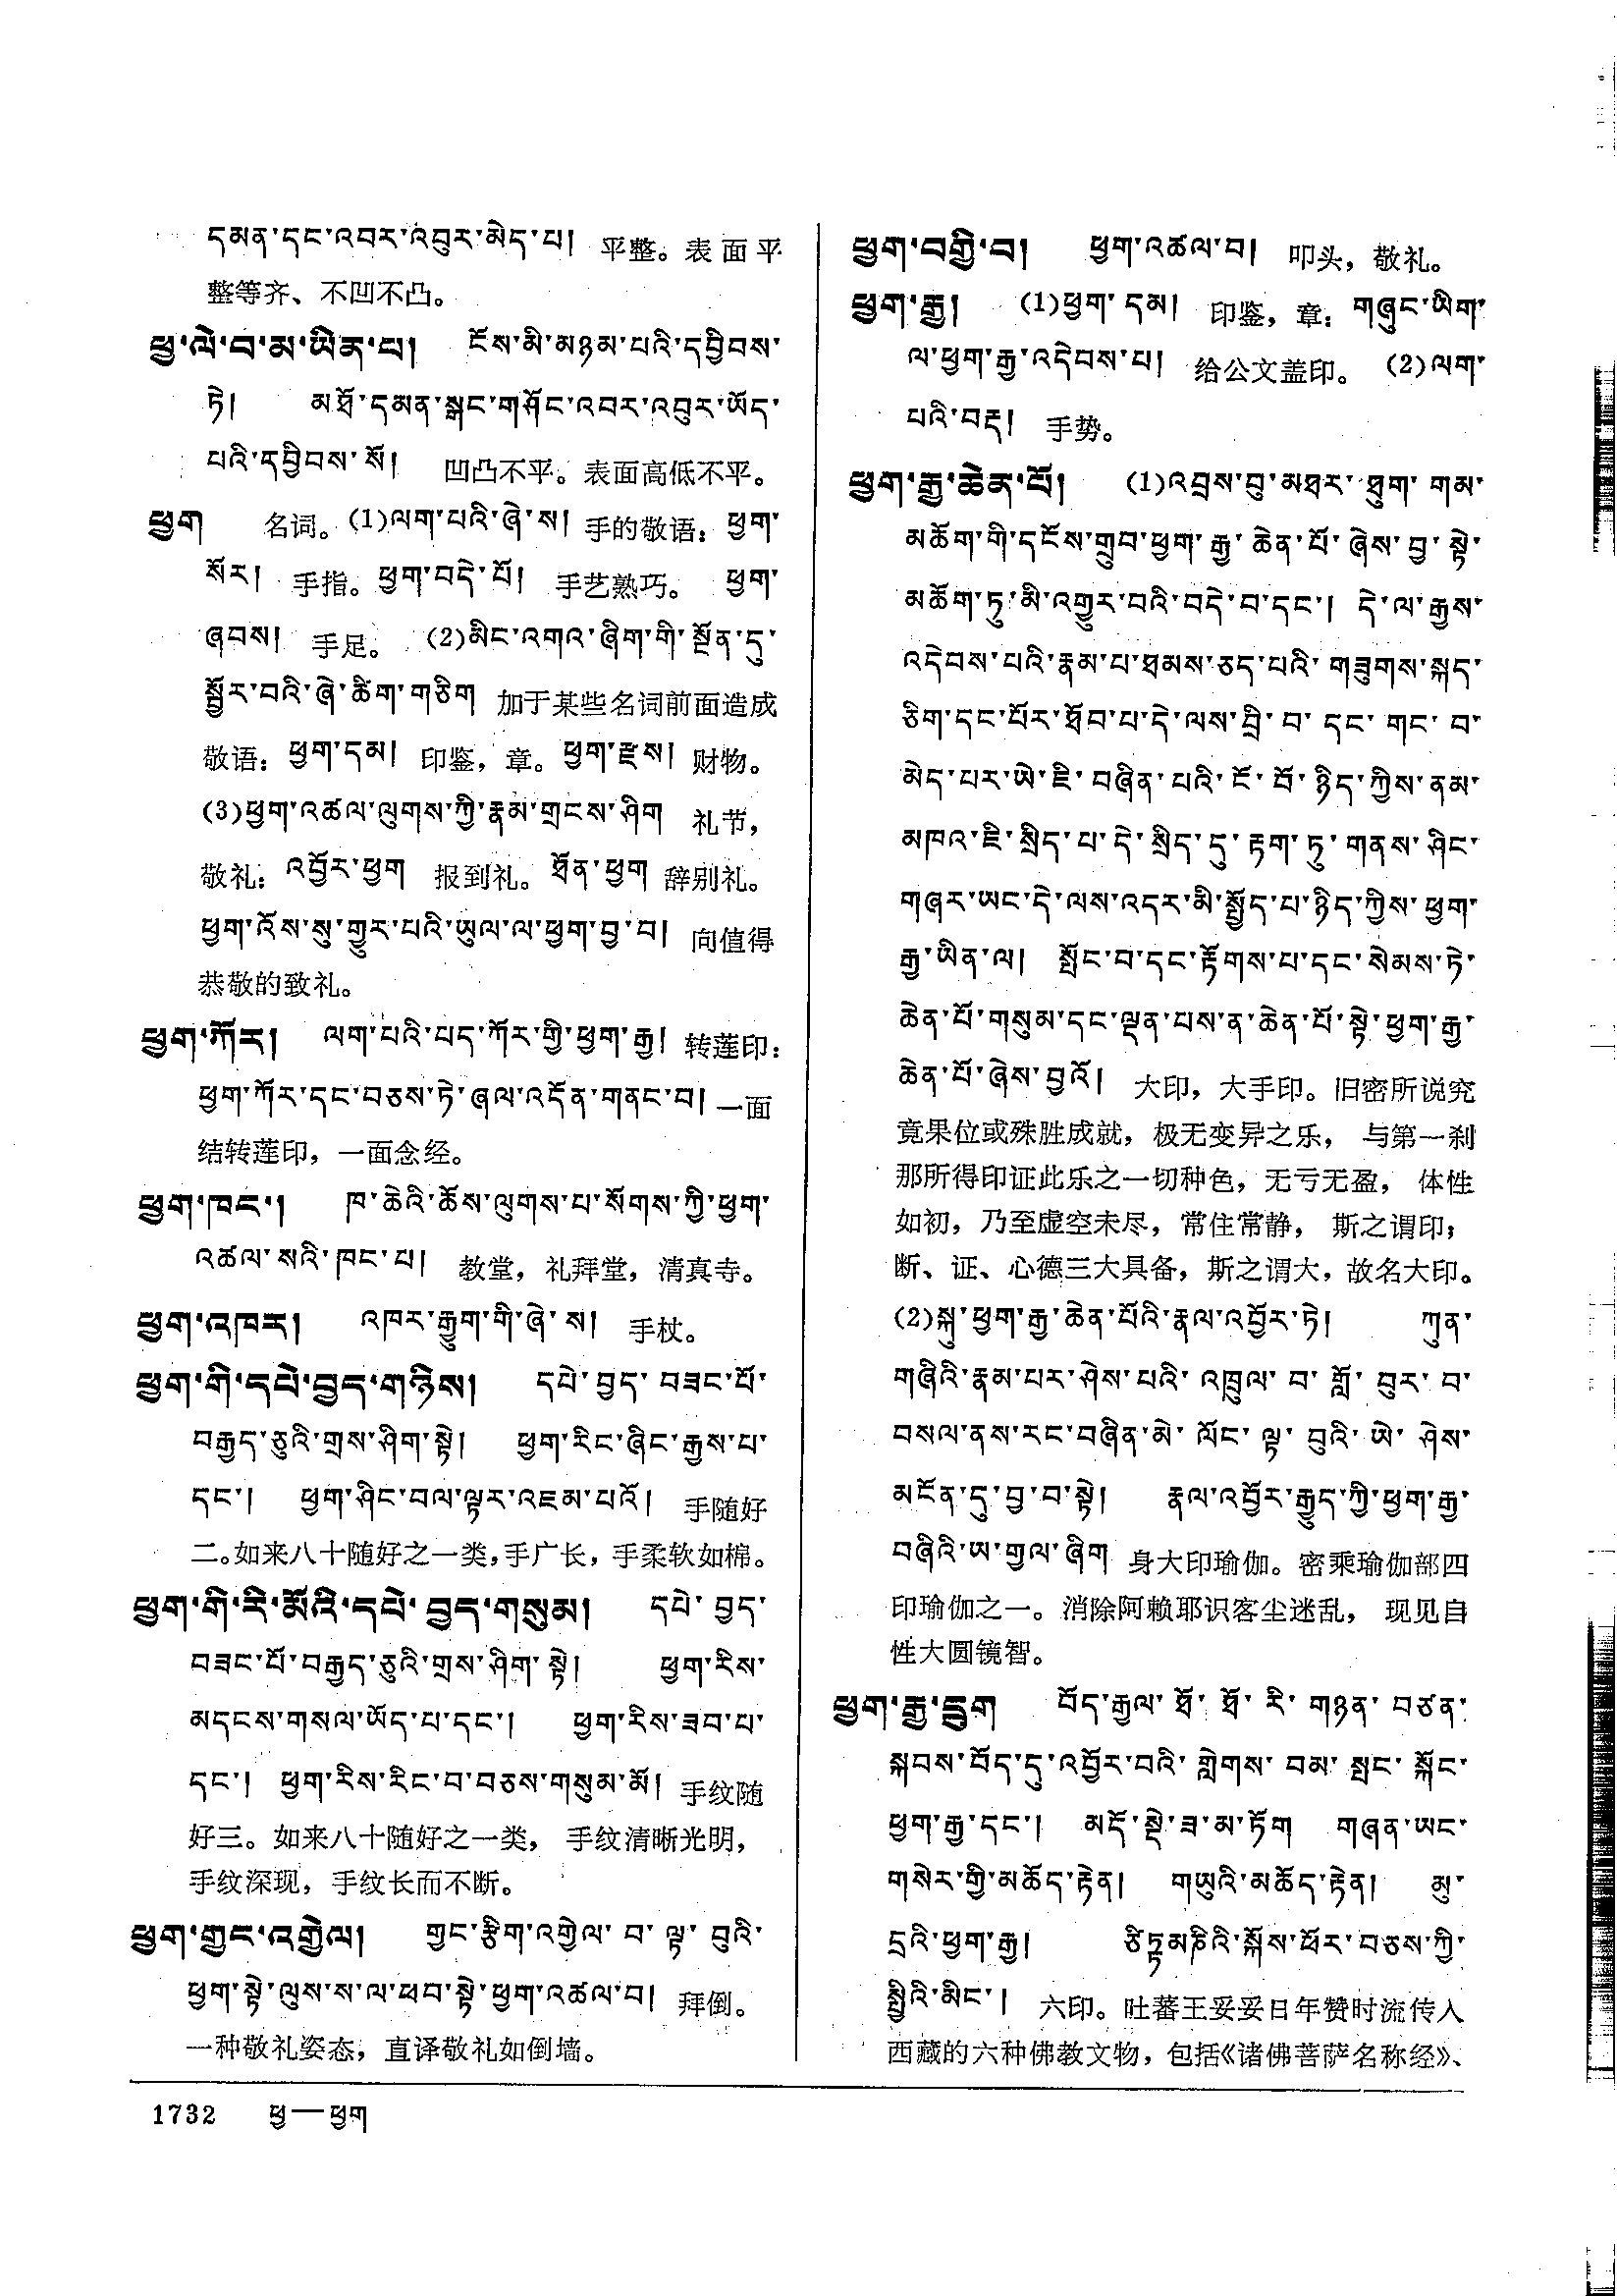 དམན་དང་འབར་འབུར་མེད་པ། 平整。表面平
整等齐、不凹不凸。
ཕྱ་ལེ་བ་མ་ཡིན་པ། ངོས་མི་མཉམ་པའི་དབྱིབས་
ཏེ། མཐོ་དམན་སྒང་གཤོང་འབར་འབུར་ཡོད་
པའི་དབྱིབས་སོ། 凹凸不平。表面高低不平。
ཕྱག 名词。(1)ལག་པའི་ཞེ་ས། 手的敬语：ཕྱག་
སོར། 手指。ཕྱག་བདེ་པོ། 手艺熟巧。 ཕྱག་
ཞབས། 手足。 (2)མིང་འགའ་ཞིག་གི་སྔོན་དུ་
སྦྱོར་བའི་ཞེ་ཚིག་གཅིག 加于某些名词前面造成
敬语：ཕྱག་དམ། 印鉴，章。ཕྱག་རྫས། 财物。
(3)ཕྱག་འཚལ་ལུགས་ཀྱི་རྣམ་གྲངས་ཤིག 礼节，
敬礼：འབྱོར་ཕྱག 报到礼。ཐོན་ཕྱག 辞别礼。
ཕྱག་འོས་སུ་གྱུར་པའི་ཡུལ་ལ་ཕྱག་བྱ་བ། 向值得
恭敬的致礼。
ཕྱག་ཀོར། ལག་པའི་པད་ཀོར་གྱི་ཕྱག་རྒྱ། 转莲印：
ཕྱག་ཀོར་དང་བཅས་ཏེ་ཞལ་འདོན་གནང་བ། 一面
结转莲印，一面念经。
ཕྱག་ཁང་། ཁ་ཆེའི་ཆོས་ལུགས་པ་སོགས་ཀྱི་ཕྱག་
འཚལ་སའི་ཁང་པ། 教堂，礼拜堂，清真寺。
ཕྱག་འཁར། འཁར་རྒྱུག་གི་ཞེ་ས། 手杖。
ཕྱག་གི་དཔེ་བྱད་གཉིས། དཔེ་བྱད་བཟང་པོ་
བརྒྱད་ཅུའི་གྲས་ཤིག་སྟེ། ཕྱག་རིང་ཞིང་རྒྱས་པ་
དང་། ཕྱག་ཤིང་བལ་ལྟར་འཇམ་པའོ། 手随好
二。如来八十随好之一类，手广长，手柔软如棉。
ཕྱག་གི་རི་མོའི་དཔེ་བྱད་གསུམ། དཔེ་བྱད་
བཟང་པོ་བརྒྱད་ཅུའི་གྲས་ཤིག་སྟེ། ཕྱག་རིས་
མདངས་གསལ་ཡོད་པ་དང་། ཕྱག་རིས་ཟབ་པ་
དང་། ཕྱག་རིས་རིང་བ་བཅས་གསུམ་མོ། 手纹随
好三。如来八十随好之一类， 手纹清晰光明，
手纹深现，手纹长而不断。
ཕྱག་གྱང་འགྱེལ། གྱང་རྩིག་འགྱེལ་བ་ལྟ་བུའི་
ཕྱག་སྟེ་ལུས་ས་ལ་ཕབ་སྟེ་ཕྱག་འཚལ་བ། 拜倒。
一种敬礼姿态，直译敬礼如倒墙。
ཕྱག་བགྱི་བ། ཕྱག་འཚལ་བ། 叩头，敬礼。
ཕྱག་རྒྱ། (1)ཕྱག་དམ། 印鉴，章：གཞུང་ཡིག་
ལ་ཕྱག་རྒྱ་འདེབས་པ། 给公文盖印。 (2)ལག་
པའི་བརྡ། 手势。
ཕྱག་རྒྱ་ཆེན་པོ། (1)འབྲས་བུ་མཐར་ཐུག་གམ་
མཆོག་གི་དངོས་གྲུབ་ཕྱག་རྒྱ་ཆེན་པོ་ཞེས་བྱ་སྟེ་
མཆོག་ཏུ་མི་འགྱུར་བའི་བདེ་བ་དང་། དེ་ལ་རྒྱས་
འདེབས་པའི་རྣམ་པ་ཐམས་ཅད་པའི་གཟུགས་སྐད་
ཅིག་དང་པོར་ཐོབ་པ་དེ་ལས་བྲི་བ་དང་གང་བ་
མེད་པར་ཡེ་ཇི་བཞིན་པའི་ངོ་བོ་ཉིད་ཀྱིས་ནམ་
མཁའ་ཇི་སྲིད་པ་དེ་སྲིད་དུ་རྟག་ཏུ་གནས་ཤིང་
གཞར་ཡང་དེ་ལས་འདར་མི་སྤྱོད་པ་ཉིད་ཀྱིས་ཕྱག་
རྒྱ་ཡིན་ལ། སྤོང་བ་དང་རྟོགས་པ་དང་སེམས་ཏེ་
ཆེན་པོ་གསུམ་དང་ལྡན་པས་ན་ཆེན་པོ་སྟེ་ཕྱག་རྒྱ་
ཆེན་པོ་ཞེས་བྱའོ། 大印，大手印。旧密所说究
竟果位或殊胜成就，极无变异之乐， 与第一刹
那所得印证此乐之一切种色，无亏无盈， 体性
如初，乃至虚空未尽，常住常静， 斯之谓印；
断、证、心德三大具备，斯之谓大，故名大印。
(2)སྐུ་ཕྱག་རྒྱ་ཆེན་པོའི་རྣལ་འབྱོར་ཏེ། ཀུན་
གཞིའི་རྣམ་པར་ཤེས་པའི་འཁྲུལ་བ་གློ་བུར་བ་
བསལ་ནས་རང་བཞིན་མེ་ལོང་ལྟ་བུའི་ཡེ་ཤེས་
མངོན་དུ་བྱ་བ་སྟེ། རྣལ་འབྱོར་རྒྱུད་ཀྱི་ཕྱག་རྒྱ་
བཞིའི་ཡ་གྱལ་ཞིག 身大印瑜伽。密乘瑜伽部四
印瑜伽之一。消除阿赖耶识客尘迷乱， 现见自
性大圆镜智。
ཕྱག་རྒྱ་དྲུག བོད་རྒྱལ་ཐོ་ཐོ་རི་གཉན་བཙན་
སྐབས་བོད་དུ་འབྱོར་བའི་གླེགས་བམ་སྤང་སྐོང་
ཕྱག་རྒྱ་དང་། མདོ་སྡེ་ཟ་མ་ཏོག གཞན་ཡང་
གསེར་གྱི་མཆོད་རྟེན། གཡུའི་མཆོད་རྟེན། མུ་
དྲའི་ཕྱག་རྒྱ། ཙིཏྟམཎིའི་སྐོས་ཕོར་བཅས་ཀྱི་
སྤྱིའི་མིང་། 六印。吐蕃王妥妥日年赞时流传入
西藏的六种佛教文物，包括《诸佛菩萨名称经》、
1732 ཕྱ—ཕྱག